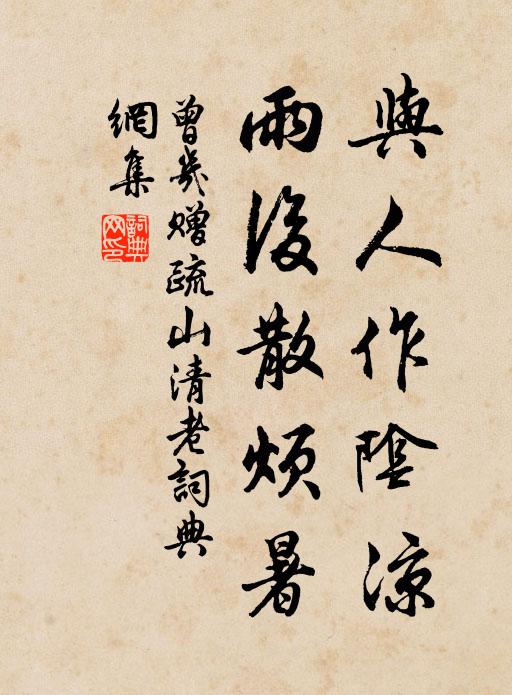 與人作陰涼
雨後散煩暑
曾幾贈疏山清老詞典
網集
詞典網印